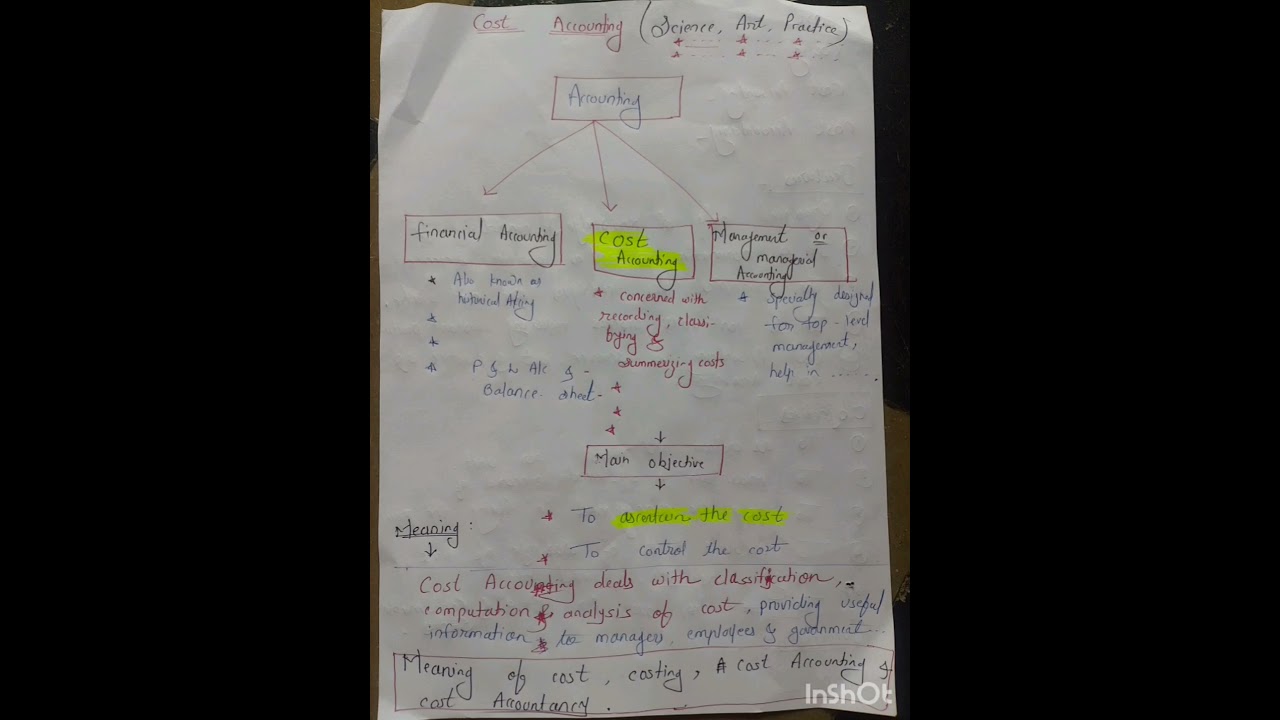 Cost Accounting (Science, Art, Practice)
Accounting
financial Accounting
* Also known as
historical
*
*
* P & L A/c &
Balance sheet-
Cost
Accounting
* concerned with
recording, classi-
fying &
summerizing costs
*
*
*
Management or
managerial
Accounting
* Specially designed
for top-level
management,
help in ......
↓
Main objective
↓
* To ascertain the cost
* To control the cost
Meaning:
↓
Cost Accounting deals with classification,
computation & analysis of cost, providing useful
information to managers, employees & government...
Meaning of cost, costing, cost Accounting &
cost Accountancy.
InShOt